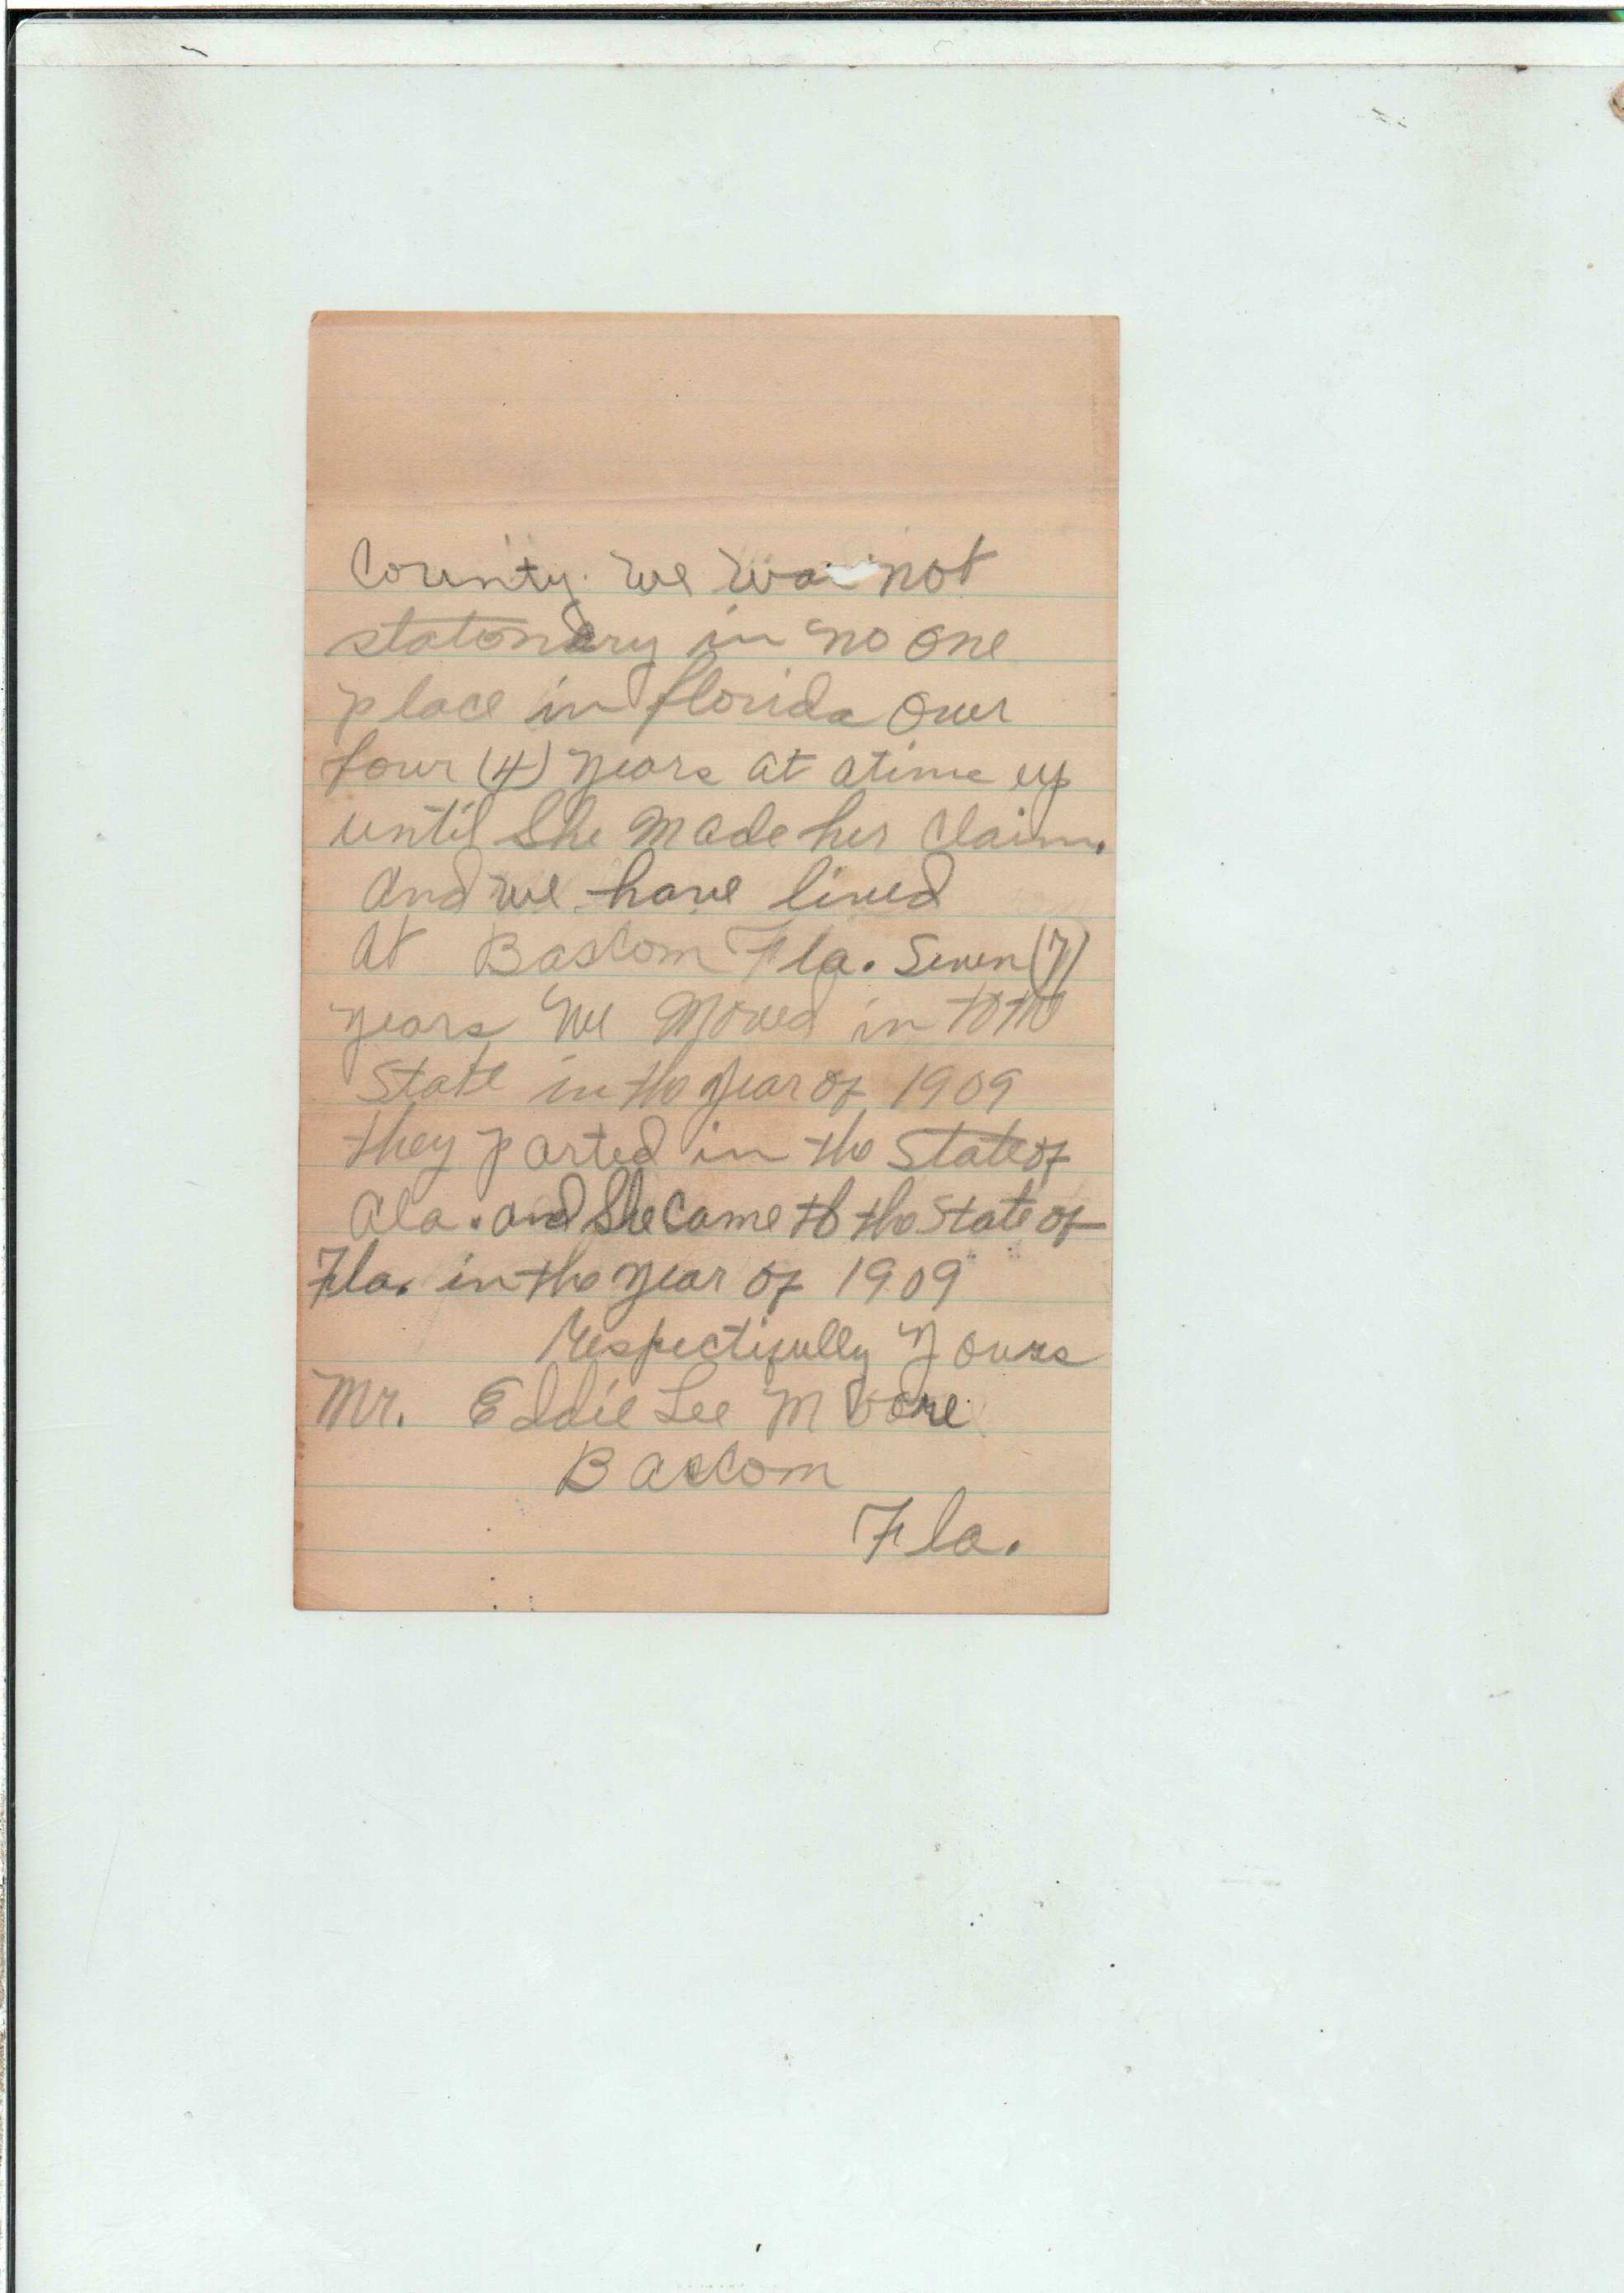 County. we wa not
stationary in no one
place in florida over
four (4) years at atime up
until She Made her Claim.
and we have lived
at Bascom Fla. Seven (7)
years We Moved in to the
State in the year of 1909
they parted in the State of
Ala. and She Came to the State of
Fla. in the year of 1909
Respectifully Yours
Mr. Eddie Lee Moore
Bascom
Fla.